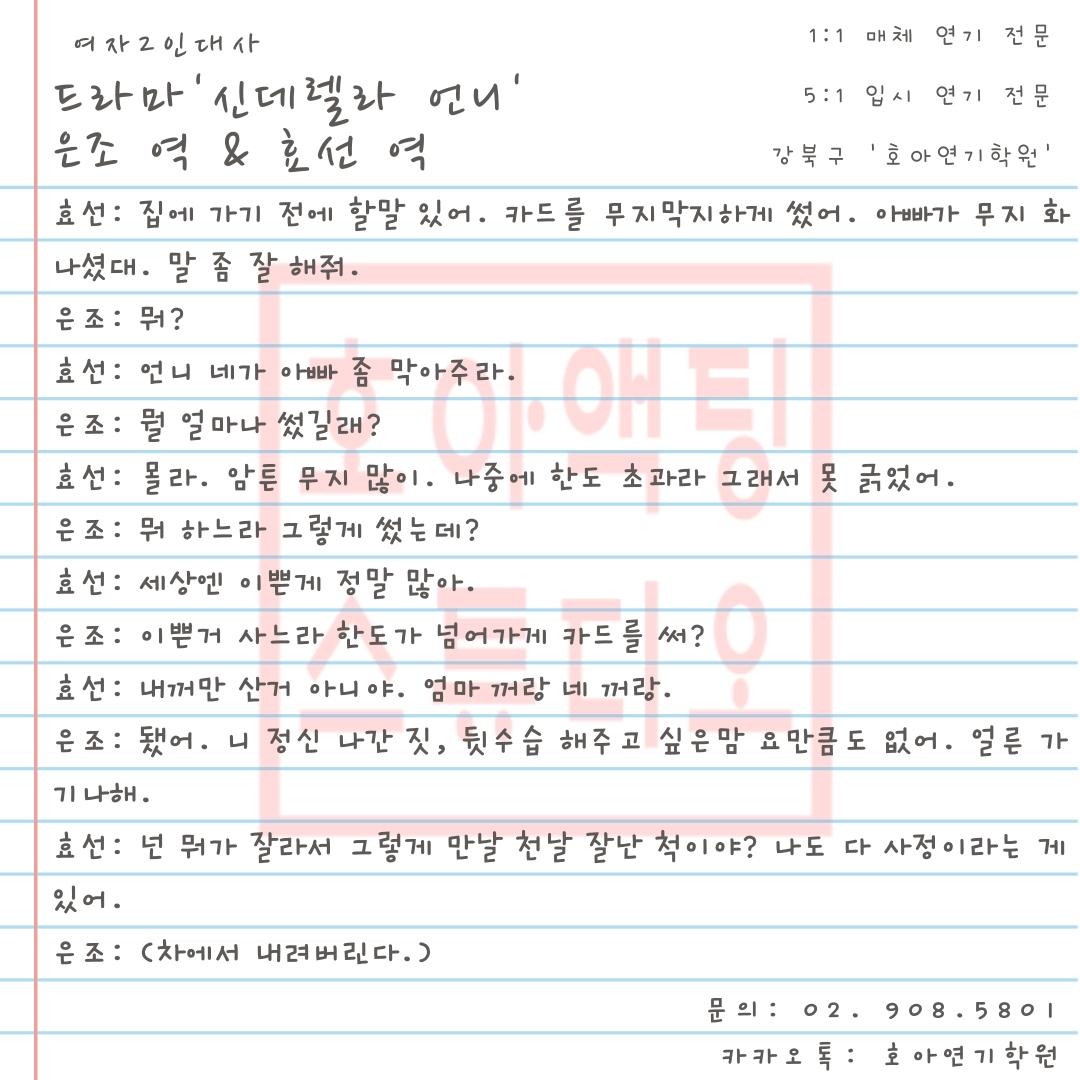 여자2인대사
드라마'신데렐라 언니'
은조 역 & 효선 역
1:1 매체 연기 전문
5:1 입시 연기 전문
강북구 '호아연기학원'
효선: 집에 가기 전에 할말 있어. 카드를 무지막지하게 썼어. 아빠가 무지 화
나셨대. 말 좀 잘 해줘.
은조: 뭐?
효선: 언니 네가 아빠 좀 막아주라.
은조: 뭘 얼마나 썼길래?
효선: 몰라. 암튼 무지 많이. 나중에 한도 초과라 그래서 못 긁었어.
은조: 뭐 하느라 그렇게 썼는데?
효선: 세상엔 이쁜게 정말 많아.
은조: 이쁜거 사느라 한도가 넘어가게 카드를 써?
효선: 내꺼만 산거 아니야. 엄마 꺼랑 네 꺼랑.
은조: 됐어. 니 정신 나간 짓, 뒷수습 해주고 싶은맘 요만큼도 없어. 얼른 가
기나해.
효선: 넌 뭐가 잘라서 그렇게 만날 천날 잘난 척이야? 나도 다 사정이라는 게
있어.
은조: (차에서 내려버린다.)
문의: 02. 908.5801
카카오톡: 호아연기학원
호아액팅
스튜디오